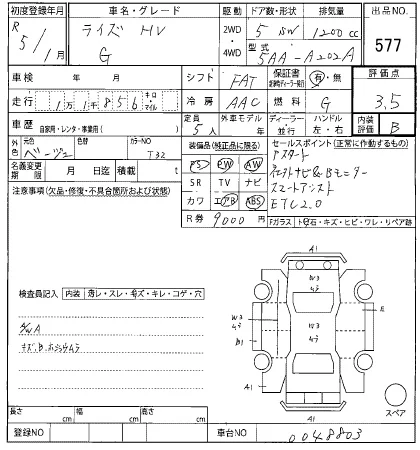 初度登録年月 車名・グレード 駆動 ドア数・形状 排気量 出品NO.
R 5/1月 ライズ HV 2WD 5 DW 1200cc 577
G 4WD 型式 5AA-A202A
車検 年 月 シフト FAT 保証書 有・無 評価点
走行 1万1千856 キロ・マイル 冷房 AAC 燃料 G 3.5
車歴 自家用・レンタ・事業用( ) 定員 5人 外車モデル 年 ディーラー・並行 ハンドル 左・右 内装評価 B
外色 元色 ベージュ 色替 カラーNO T32 装備品(純正品に限る) セールスポイント(正常に作動するもの)
名義変更期限 月 日迄 積載 t PS PW AW Pスタート
注意事項(欠品・修復・不具合箇所および状態) SR TV ナビ コネクトナビ&Bモニター
カワ エアB ABS スマートアシスト
R券 9000円 ETC2.0
Fガラス ト石・キズ・ヒビ・ワレ・リペア跡
検査員記入 内装 汚レ・スレ・キズ・キレ・コゲ・穴
A/W A
キズ.B.ホシツムラ
A1
W3
ムラ
W3
ムラ
B1
E
W3
ムラ
A1
A1
スペア
長さ cm 幅 cm 高さ cm
登録NO 車台NO 0048803